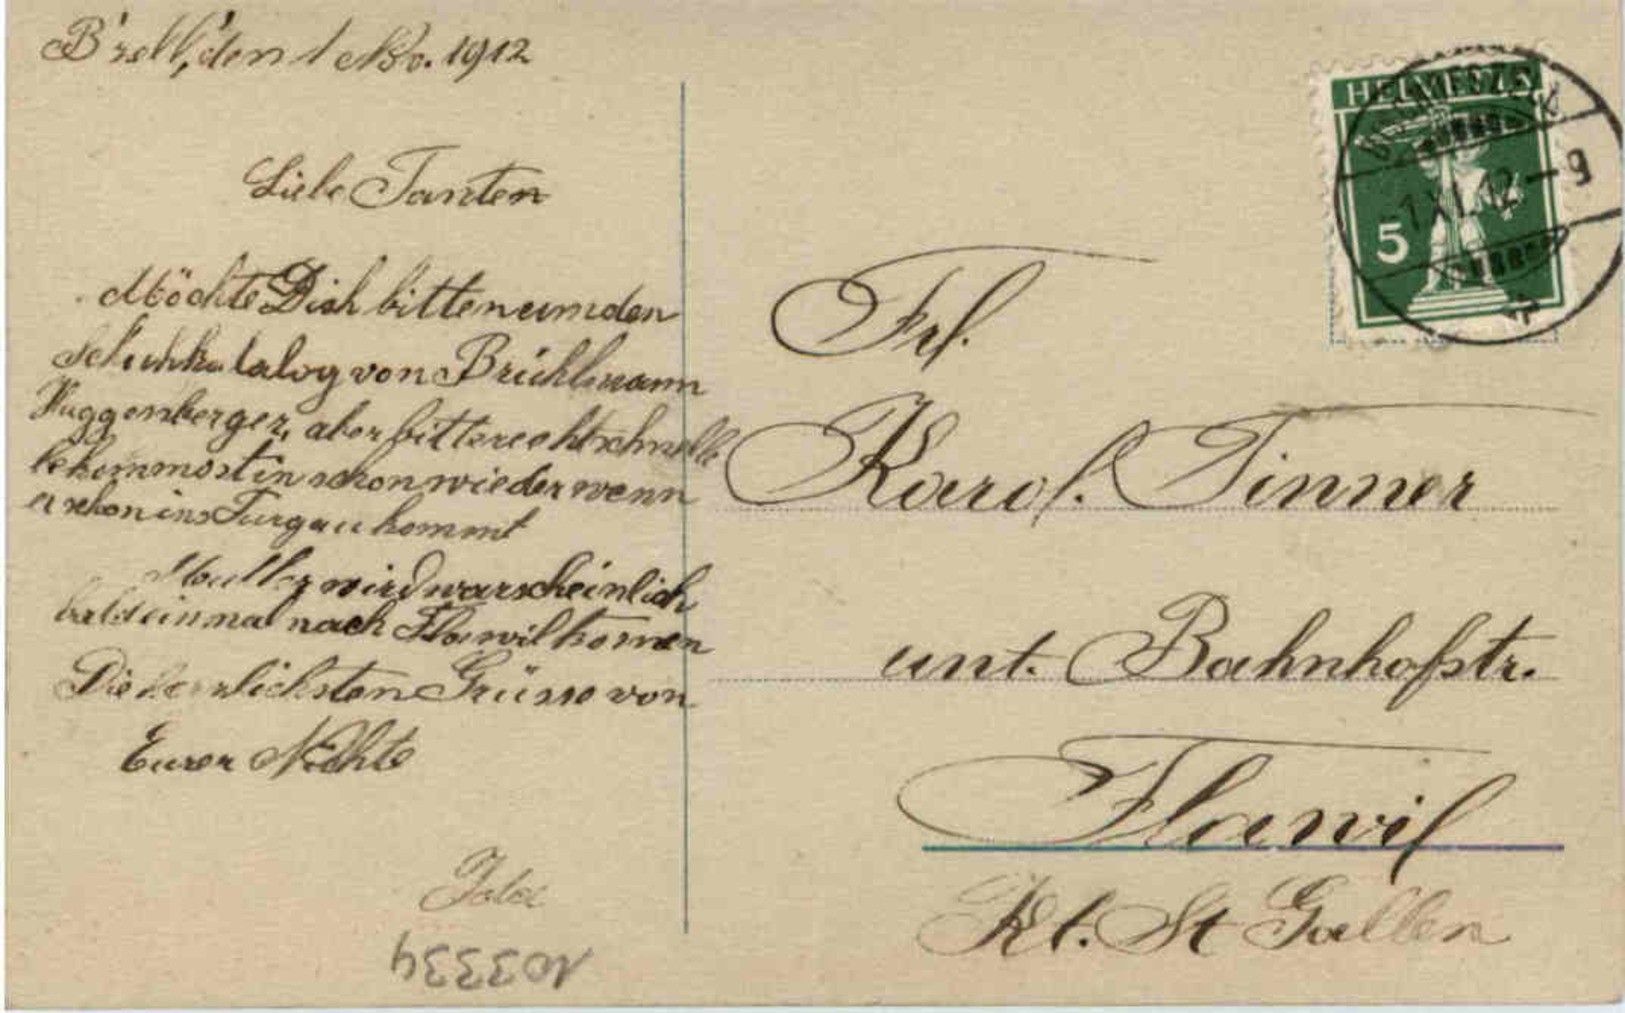 B'zell, den 1 Nov. 1912
Liebe Tanten
Möchte Dich bitten um den
Schuhkatalog von Brühlmann
Huggenberger, aber bitte recht schnell
bekommst in schon wieder wenn
er schon ins Turgau kommt
Mutter wird warscheinlich
bald einmal nach Flawil komen
Die herzlichsten Grüsse von
Eurer Nichte
Ida
103334
HELVETIA
5
BISCHOFSZELL
1.XI.12-9
Frl.
Karol. Tinner
unt. Bahnhofstr.
Flawil
Kt. St Gallen